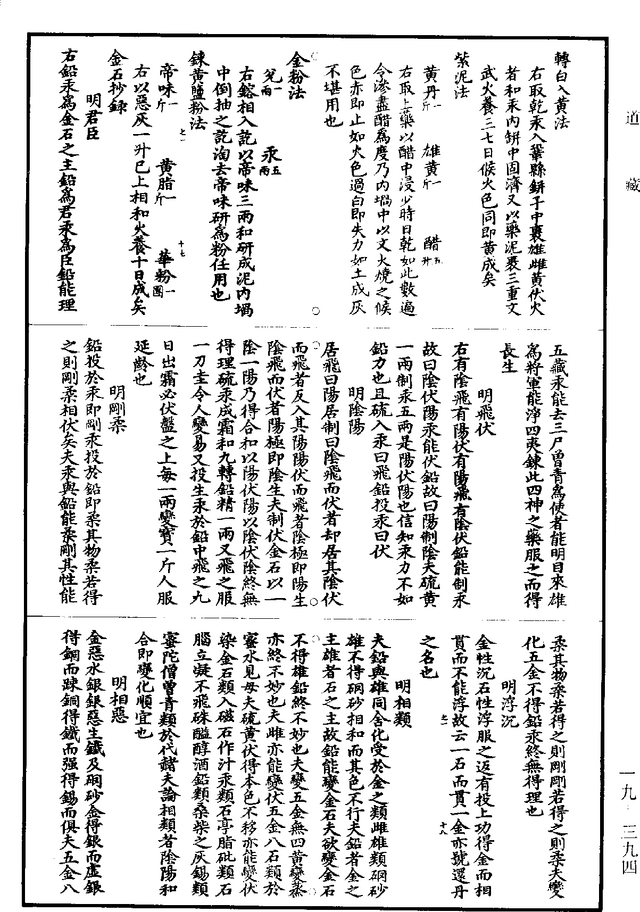 道藏
轉白入黃法
右取乾汞入鞏縣缾子中裹雄雌黃伏火
者和汞内缾中固濟又以藥泥裹三重文
武火養三七日候火色同即黃成矣
紫泥法
黃丹一斤 雄黃一斤 醋五升
右取上藥以醋中浸少時日乾如此數遍
令滲盡醋為度乃内堝中以文火燒之候
色赤即止如火色過白即失力如土成灰
不堪用也
金粉法
兊一兩 汞五兩
右鎔相入訖以帝味三兩和研成泥内堝
中倒抽之訖淘去帝味研為粉任用也
鍊黃鹽粉法
帝味一斤 黃脂一斤 華粉一團
右以惡灰一升已上相和火養十日成矣
金石抄錄
明君臣
右鉛汞為金石之主鉛為君汞為臣鉛能理
五藏汞能去三尸曾青為使者能明目來雄
為將軍能淨四夷鍊此四神之藥服之而得
長生
明飛伏
右有陰飛有陽伏有陽飛有陰伏鉛能制汞
故曰陰伏陽汞能伏鉛故曰陽制陰夫硫黃
一兩制汞五兩是陽伏陽也信知汞力不如
鉛力也且硫入汞曰飛鉛投汞曰伏
明陰陽
居飛曰陽居制曰陰飛而伏者却居其陰伏
而飛者反入其陽陽伏而飛者陰極即陽生
陰飛而伏者陽極即陰生夫制伏金石以一
陰一陽乃得合和以陽伏陽以陰伏陰終無
得理硫汞成霜和九轉鉛精一兩又飛之服
一刀圭令人變易又投生汞於鉛中飛之九
日出霜必伏盤之上每一兩變寶一斤人服
延齡也
明剛柔
鉛投於汞即剛汞投於鉛即柔其物柔若得
之則剛柔相伏矣夫汞與鉛能柔剛其性能
柔其物柔若得之則剛剛若得之則柔夫變
化五金不得鉛汞終無得理也
明浮沉
金性沉石性浮服之返有投上功得金而相
貫而不能浮故云一石而貫一金亦號還丹
之名也
明相類
夫鉛與雄同舍化受於金之類雌雄類硇砂
雄不得硇砂相和而其色不行夫鉛者金之
主雄者石之主故鉛能變金石夫欲變金石
不得雄鉛終不妙也夫變五金無四黃變蒸
亦終不妙也夫雌亦能變伏五金八石類於
蜜水見毋夫硫黃伏得本色不移亦能變伏
染金石類入磁石作汁汞類石亭脂砒類石
腦立凝不飛硃醯醇酒鉛類桑柴之灰錫類
蜜陀僧曾青類於代赭夫論相類者陰陽和
合即變化順宜也
明相惡
金惡水銀銀惡生鐵及硇砂金得銀而虛銀
得銅而踈銅得鐵而强得錫而俱夫五金八
一九·三九四